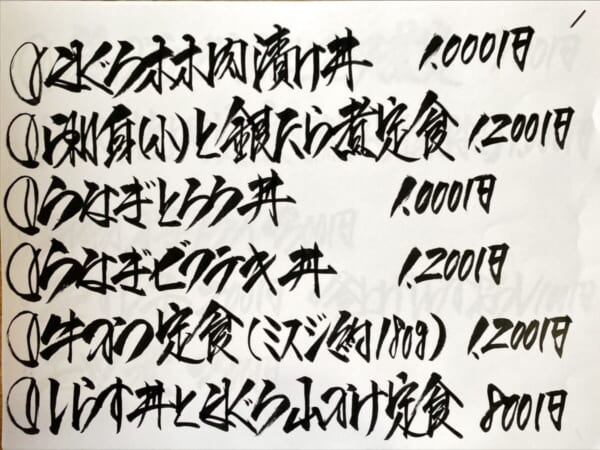 ①まぐろホホ肉漬け丼 1.000円
①刺身(小)と銀たら煮定食 1.200円
①うなぎとろろ丼 1.000円
①うなぎビフテキ丼 1.200円
①牛かつ定食(ミスジ約180g) 1.200円
①しらす丼とまぐろ山かけ定食 800円